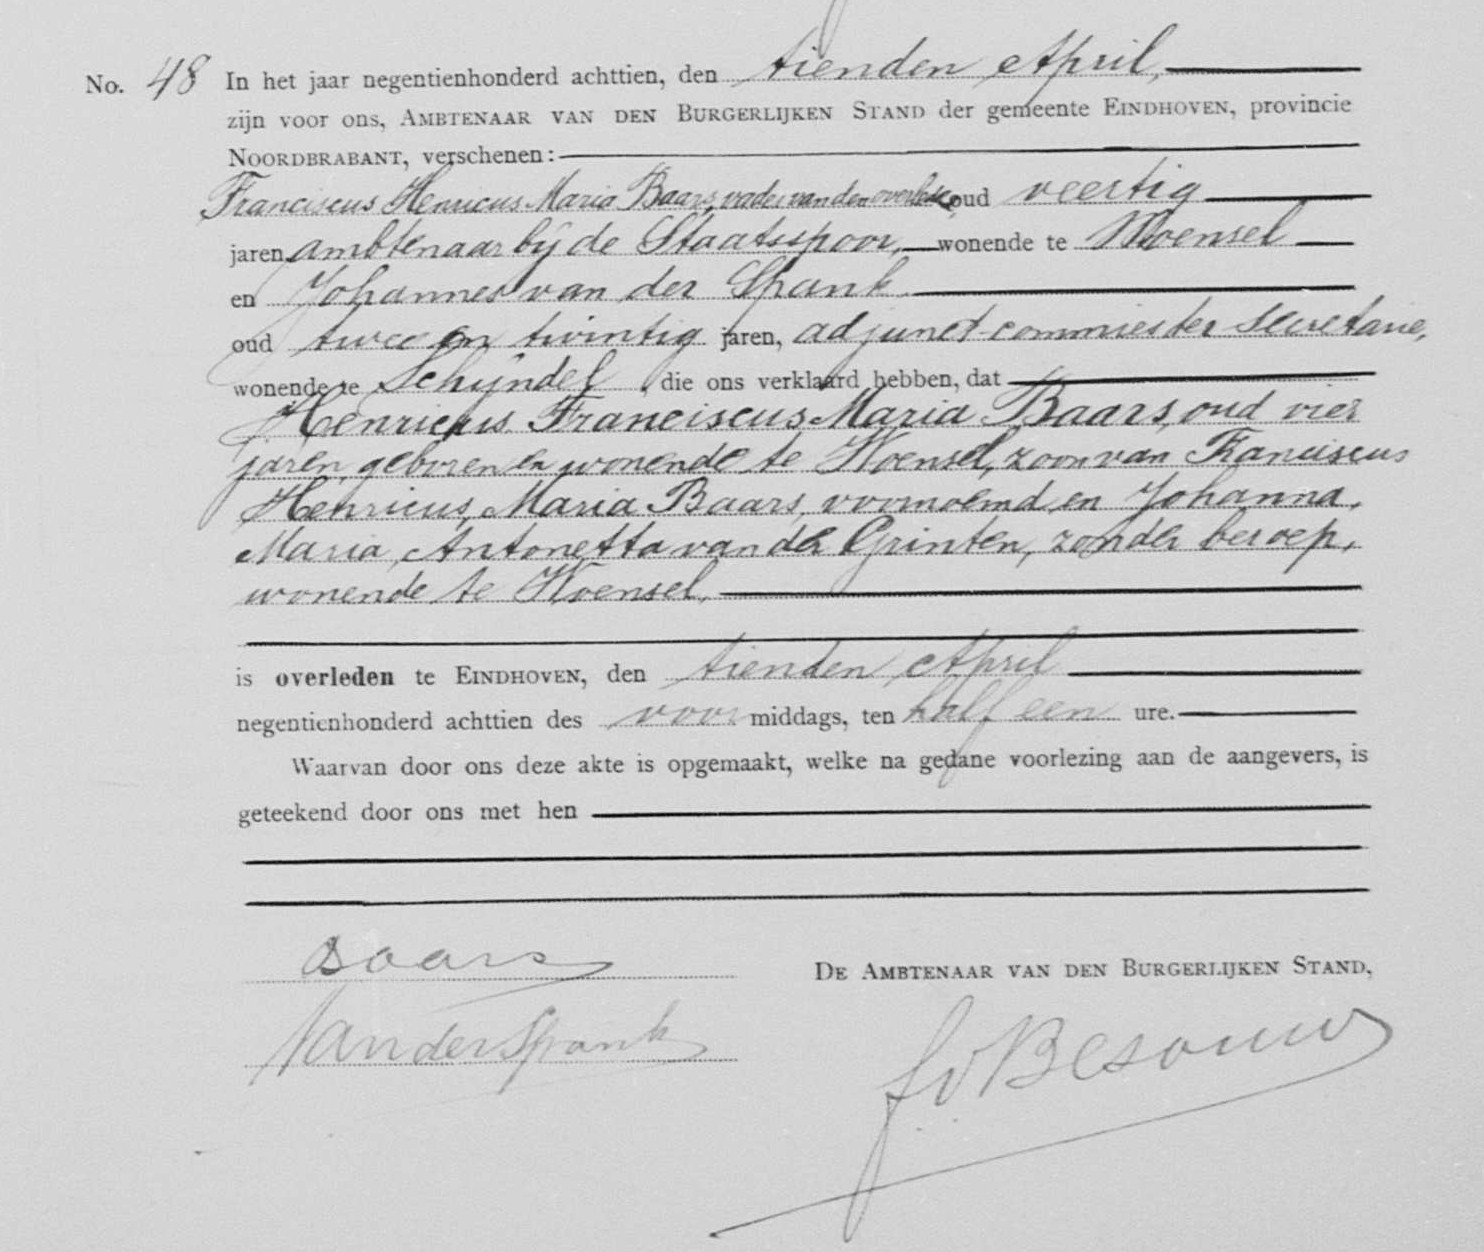 No. 48 In het jaar negentienhonderd achttien, den tienden April,
zijn voor ons, AMBTENAAR VAN DEN BURGERLIJKEN STAND der gemeente EINDHOVEN, provincie
NOORDBRABANT, verschenen:
Franciscus Henricus Maria Baars, vader van den overledene, oud veertig
jaren, ambtenaar bij de Staatsspoor, wonende te Woensel
en Johannes van der Spank
oud twee en twintig jaren, adjunct-commies ter secretarie,
wonende te Schijndel, die ons verklaard hebben, dat
Henricus Franciscus Maria Baars, oud vier
jaren, geboren en wonende te Woensel, zoon van Franciscus
Henricus Maria Baars, voornoemd en Johanna
Maria Antonetta van der Grinten, zonder beroep,
wonende te Woensel,
is overleden te EINDHOVEN, den tienden April
negentienhonderd achttien des voormiddags, ten half een ure.
Waarvan door ons deze akte is opgemaakt, welke na gedane voorlezing aan de aangevers, is
geteekend door ons met hen
Baars
DE AMBTENAAR VAN DEN BURGERLIJKEN STAND,
Van der Spank
JvBesouw